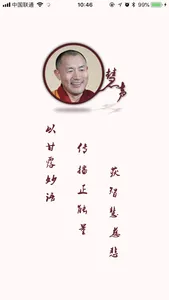 中国联通
10:46
99%
慧声
以甘露妙语
传播正能量
获智慧慈悲